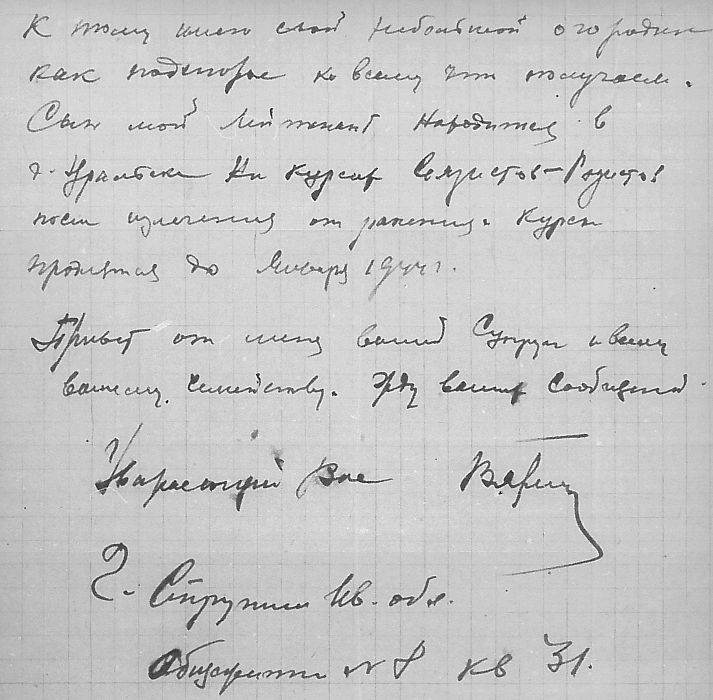 К тому имею свой небольшой огородик
как подспорье ко всему что получаем.
Сын мой лейтенант находится в
г. Уральске на курсах Связистов-Радистов
после излечения от ранения. Курсы
продлятся до Января 1944 г.
Привет от меня вашей Супруге и всему
вашему семейству. Жду ваших сообщений.
Уважающий Вас
г. Струнино Ив. обл.
Общежитие № 8 кв 31.